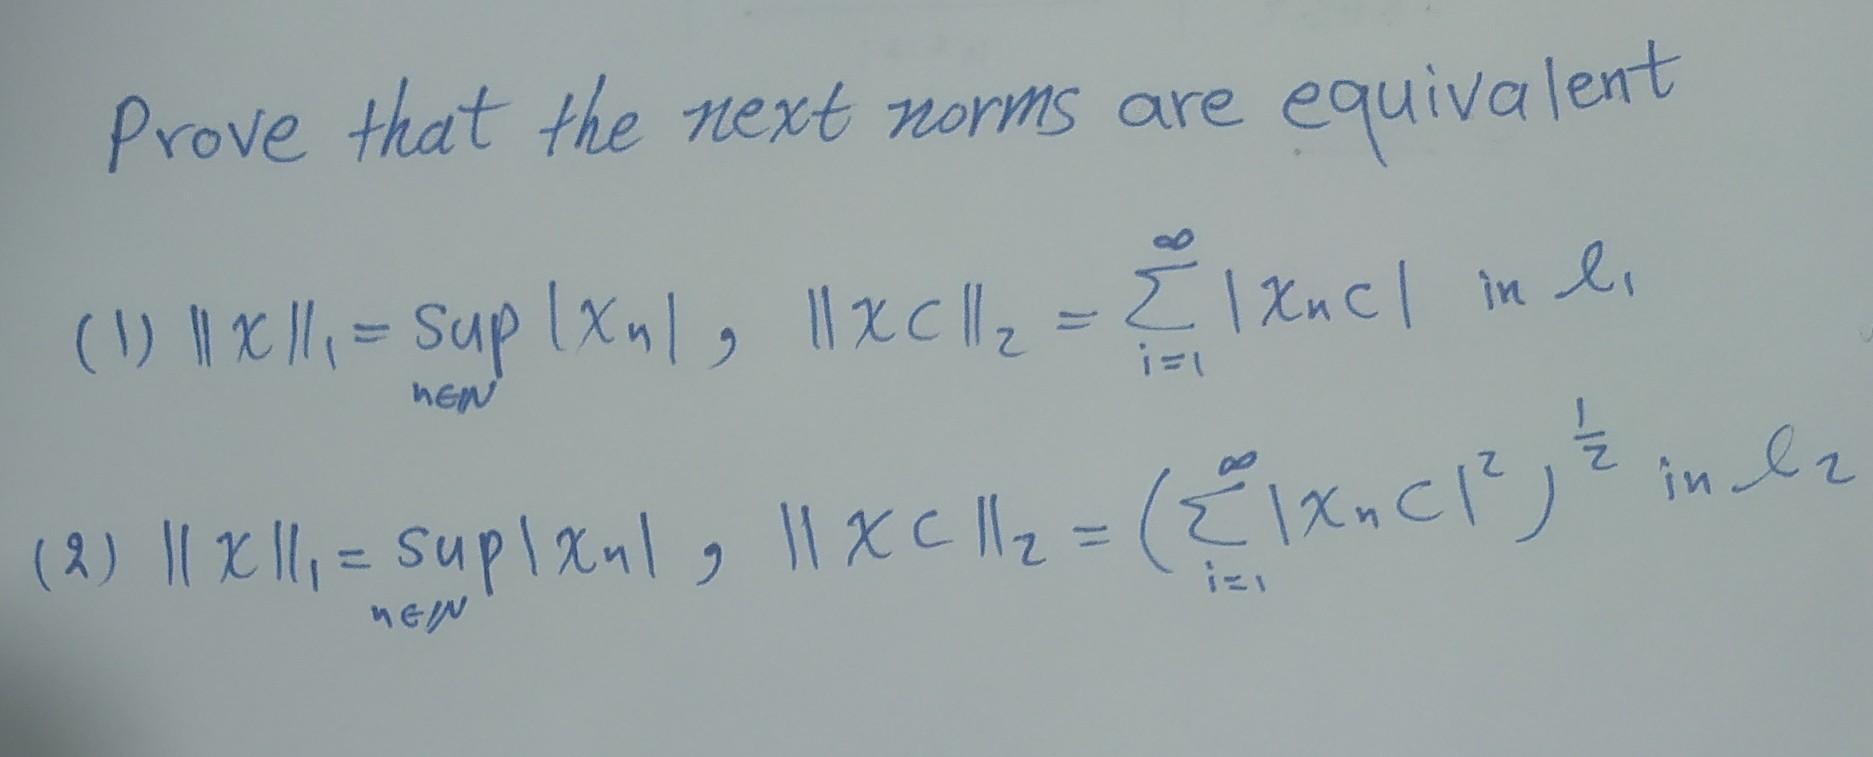 Prove that the next norms are equivalent
(1) ‖x‖₁ = sup_{n∈ℕ} |xₙ| , ‖xc‖₂ = ∑_{i=1}^{∞} |xₙc| in ℓ₁
(2) ‖x‖₁ = sup_{n∈ℕ} |xₙ| , ‖xc‖₂ = (∑_{i=1}^{∞} |xₙc|²)^{1/2} in ℓ₂